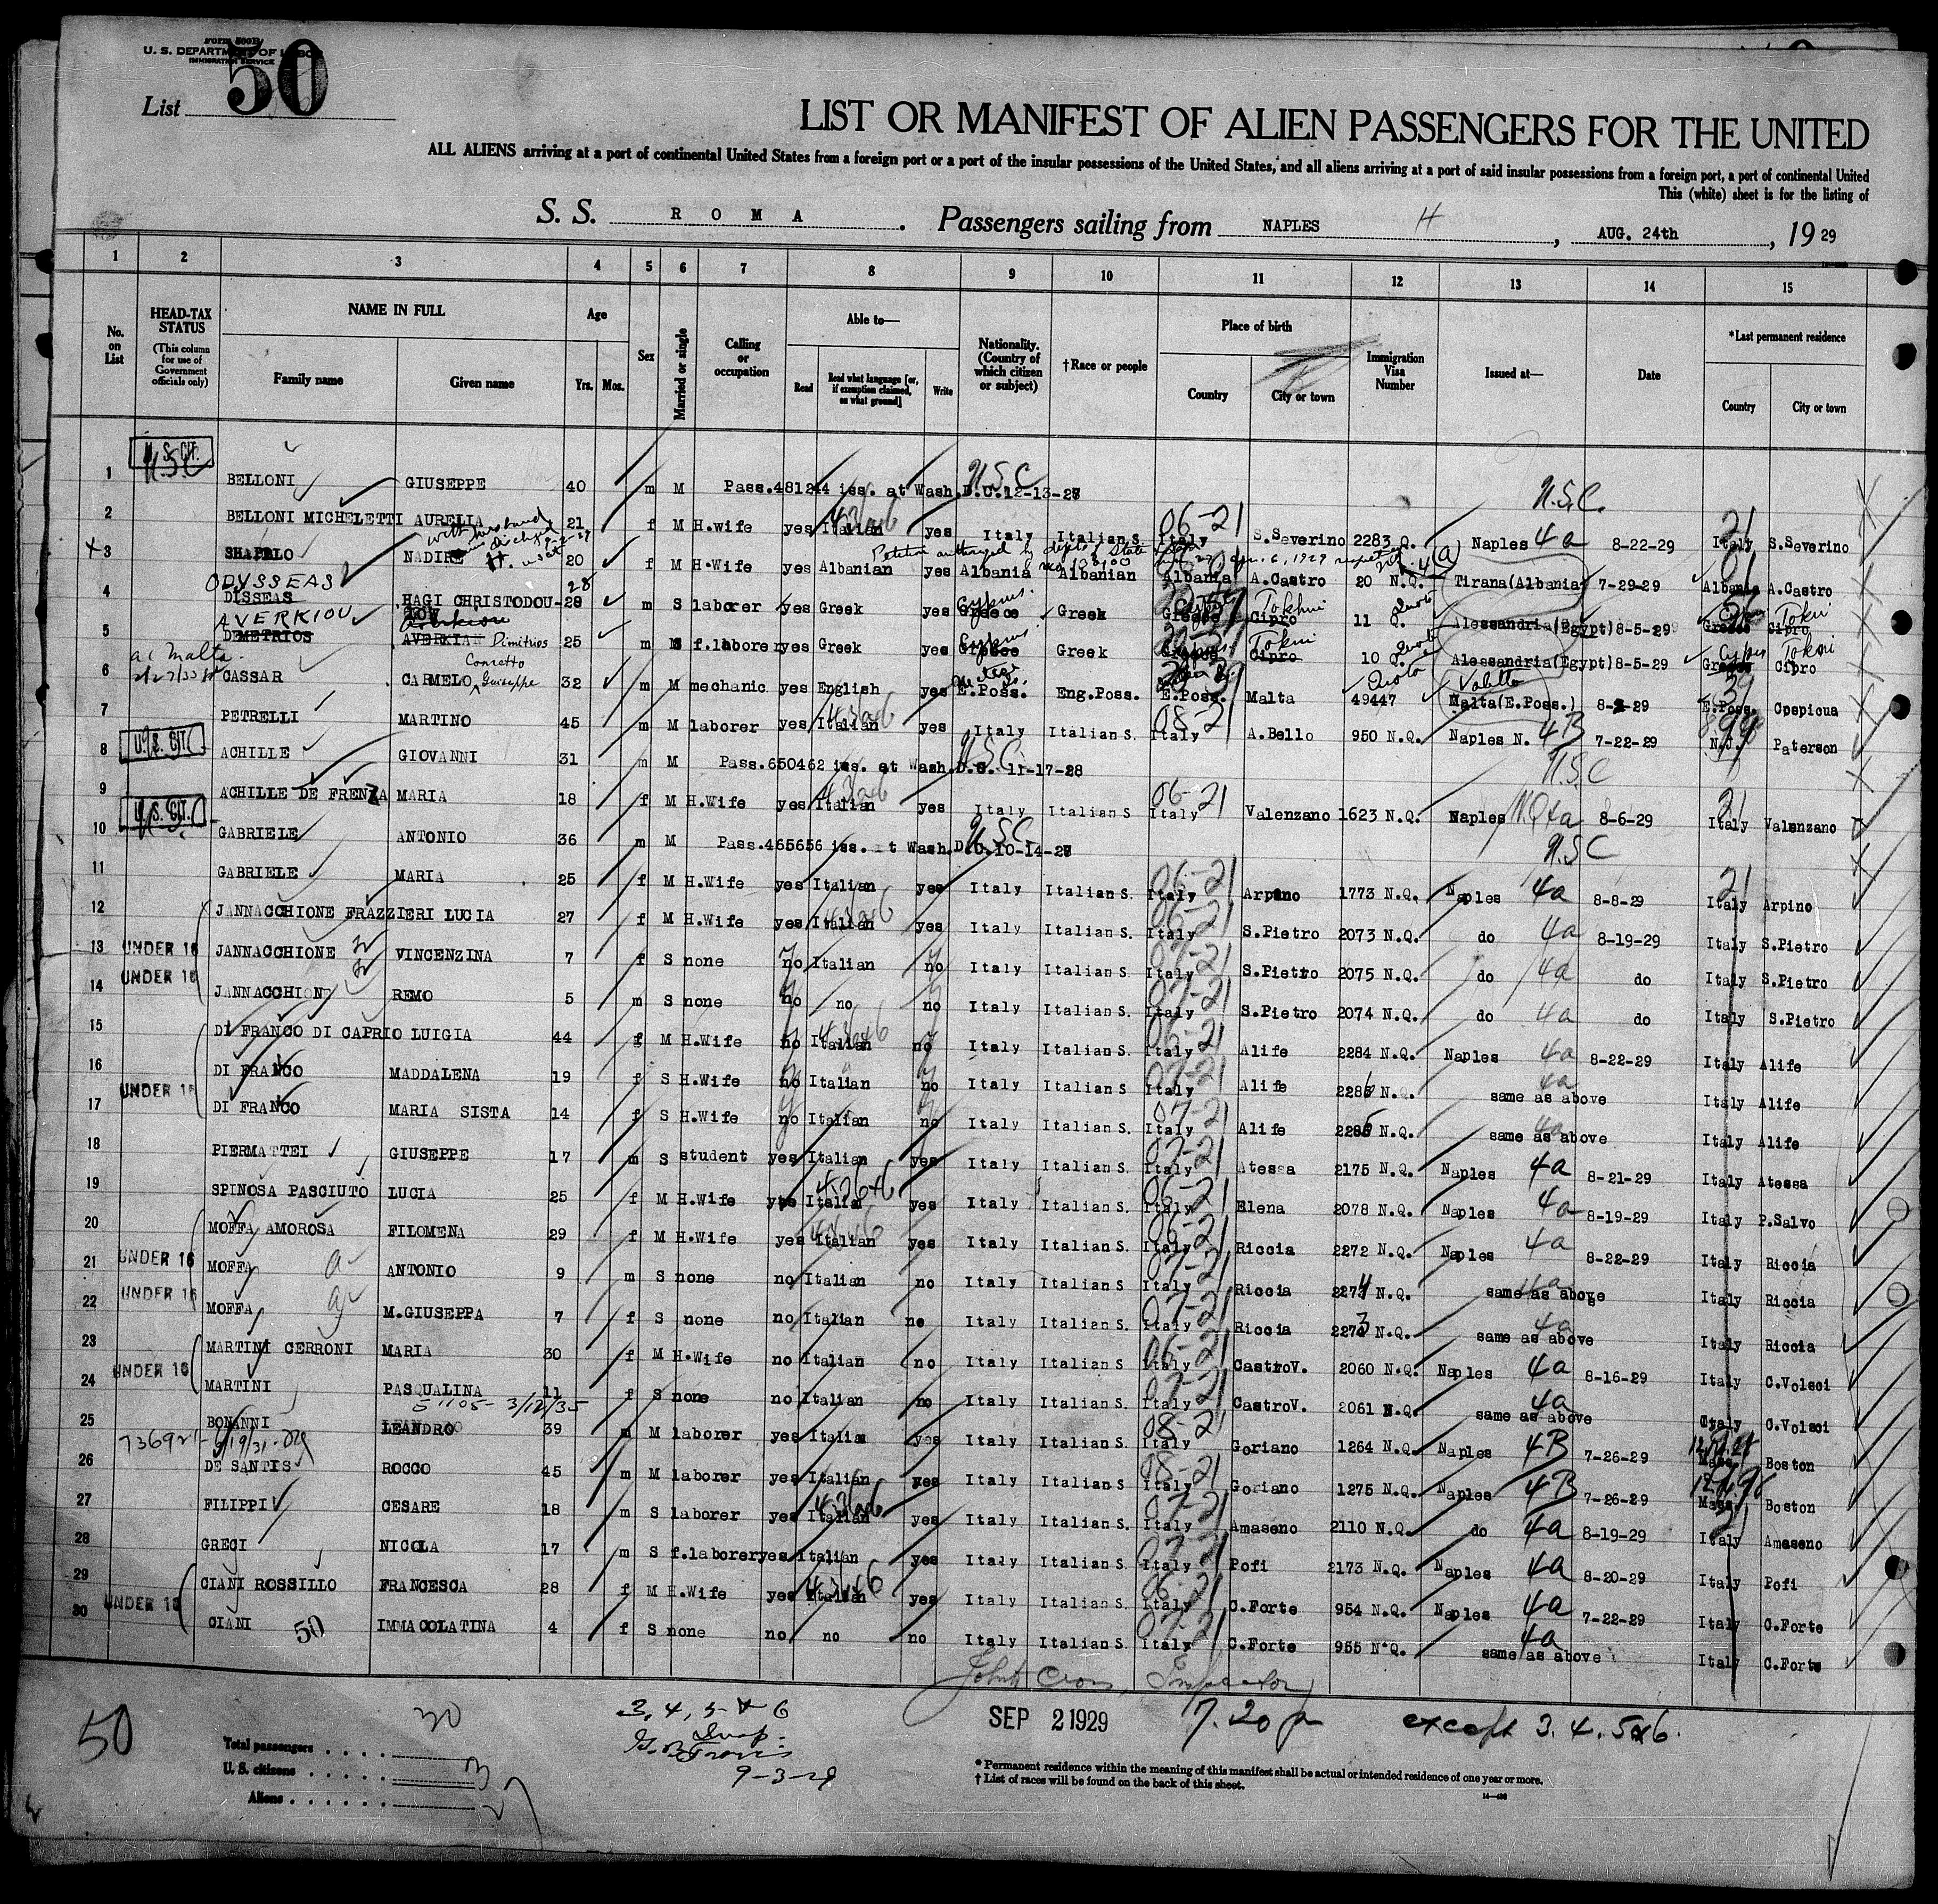 FORM 500B
U. S. DEPARTMENT OF LABOR
IMMIGRATION SERVICE
List 50
LIST OR MANIFEST OF ALIEN PASSENGERS FOR THE UNITED
ALL ALIENS arriving at a port of continental United States from a foreign port or a port of the insular possessions of the United States, and all aliens arriving at a port of said insular possessions from a foreign port, a port of continental United
This (white) sheet is for the listing of
S. S. ROMA. Passengers sailing from NAPLES H, AUG. 24th, 19 29
1 2 3 4 5 6 7 8 9 10 11 12 13 14 15
No. on List
HEAD-TAX STATUS (This column for use of Government officials only)
NAME IN FULL Family name Given name
Age Yrs. Mos.
Sex
Married or single
Calling or occupation
Able to— Read Read what language [or, if exemption claimed, on what ground] Write
Nationality. (Country of which citizen or subject)
†Race or people
Place of birth Country City or town
Immigration Visa Number
Issued at—
Date
*Last permanent residence Country City or town
1 U.S. CIT. U.S.C BELLONI GIUSEPPE 40 m M Pass.481244 iss. at Wash.D.C.12-13-27 U.S.C U.S.C.
2 BELLONI MICHELETTI AURELIA 21 f M H.wife yes Italian yes Italy Italian S. Italy 06-21 S.Severino 2283 Q. Naples 4a 8-22-29 Italy S.Severino
3 NADIRE 20 f M H.Wife yes Albanian yes Albania Albanian Albania A.Castro 20 N.Q. Tirana(Albania) 7-29-29 Albania A.Castro
ODYSSEAS
4 DISSEAS HAGI CHRISTODOU- 28 m S laborer yes Greek yes Greece Cyprus Greek Greece Cipro Tokhni 11 Q. Quota Alessandria(Egypt) 8-5-29 Greece Cipro Tokni
AVERKIOU
5 DEMETRIOS AVERKIAN Dimitrios 25 m S f.laborer yes Greek yes Greece Cyprus Greek Cipro Tokni 10 Q. Quota Alessandria(Egypt) 8-5-29 Greece Cipro Tokni
6 CASSAR CARMELO, Guiseppe 32 m M mechanic yes English yes E.Poss. Eng.Poss. E.Poss. Malta 49447 Quota Valetta Malta(E.Poss.) 8-2-29 E.Poss. Cospicua
7 PETRELLI MARTINO 45 m M laborer yes Italian yes Italy Italian S. Italy 08-21 A.Bello 950 N.Q. Naples N. 4B 7-22-29 N.J. Paterson
8 U.S. CIT. ACHILLE GIOVANNI 31 m M Pass.650462 iss. at Wash.D.C. 11-17-28 U.S.C. U.S.C
9 ACHILLE DE FRENZA MARIA 18 f M H.Wife yes Italian yes Italy Italian S Italy 06-21 Valenzano 1623 N.Q. Naples 4a 8-6-29 Italy Valenzano
10 U.S. CIT. GABRIELE ANTONIO 36 m M Pass.465656 iss. at Wash.D.C.10-14-27 U.S.C U.S.C
11 GABRIELE MARIA 25 f M H.Wife yes Italian yes Italy Italian S. Italy 06-21 Arpino 1773 N.Q. Naples 4a 8-8-29 Italy Arpino
12 JANNACCHIONE FRAZZIERI LUCIA 27 f M H.Wife yes Italian yes Italy Italian S. Italy 06-21 S.Pietro 2073 N.Q. do 4a 8-19-29 Italy S.Pietro
13 UNDER 16 JANNACCHIONE VINCENZINA 7 f S none no Italian no Italy Italian S. Italy 07-21 S.Pietro 2075 N.Q. do 4a do Italy S.Pietro
14 UNDER 16 JANNACCHIONE REMO 5 m S none no no no Italy Italian S. Italy 07-21 S.Pietro 2074 N.Q. do 4a do Italy S.Pietro
15 DI FRANCO DI CAPRIO LUIGIA 44 f M H.Wife no Italian no Italy Italian S. Italy 06-21 Alife 2284 N.Q. Naples 4a 8-22-29 Italy Alife
16 DI FRANCO MADDALENA 19 f S H.Wife no Italian no Italy Italian S. Italy 07-21 Alife 2286 N.Q. 4a same as above Italy Alife
17 UNDER 16 DI FRANCO MARIA SISTA 14 f S H.Wife no Italian no Italy Italian S. Italy 07-21 Alife 2285 N.Q. 4a same as above Italy Alife
18 PIERMATTEI GIUSEPPE 17 m S student yes Italian yes Italy Italian S. Italy 07-21 Atessa 2175 N.Q. Naples 4a 8-21-29 Italy Atessa
19 SPINOSA PASCIUTO LUCIA 25 f M H.Wife yes Italian yes Italy Italian S. Italy 06-21 Elena 2078 N.Q. Naples 4a 8-19-29 Italy P.Salvo
20 MOFFA AMOROSA FILOMENA 29 f M H.Wife yes Italian yes Italy Italian S. Italy 06-21 Riccia 2272 N.Q. Naples 4a 8-22-29 Italy Riccia
21 UNDER 16 MOFFA ANTONIO 9 m S none no Italian no Italy Italian S. Italy 07-21 Riccia 2274 N.Q. 4a same as above Italy Riccia
22 UNDER 16 MOFFA M.GIUSEPPA 7 f S none no Italian no Italy Italian S. Italy 07-21 Riccia 2273 N.Q. 4a same as above Italy Riccia
23 MARTINI CERRONI MARIA 30 f M H.Wife no Italian no Italy Italian S Italy 06-21 CastroV. 2060 N.Q. Naples 4a 8-16-29 Italy C.Volsci
24 UNDER 16 MARTINI PASQUALINA 11 f S none no Italian no Italy Italian S. Italy 07-21 CastroV. 2061 N.Q. 4a same as above Italy C.Volsci
51105- 3/12/35
25 BONANNI LEANDRO 39 m M laborer yes Italian yes Italy Italian S. Italy 08-21 Goriano 1264 N.Q. Naples 4B 7-26-29 Mass. Boston
26 DE SANTIS ROCCO 45 m M laborer yes Italian yes Italy Italian S. Italy 08-21 Goriano 1275 N.Q. Naples 4B 7-26-29 Mass. Boston
27 FILIPPI CESARE 18 m S laborer yes Italian yes Italy Italian S. Italy 07-21 Amaseno 2110 N.Q. do 4a 8-19-29 Italy Amaseno
28 GRECI NICOLA 17 m S f.laborer yes Italian yes Italy Italian S. Italy 07-21 Pofi 2173 N.Q. Naples 4a 8-20-29 Italy Pofi
29 CIANI ROSSILLO FRANCESCA 28 f M H.Wife yes Italian yes Italy Italian S. Italy 06-21 C.Forte 954 N.Q. Naples 4a 7-22-29 Italy C.Forte
30 UNDER 16 CIANI 50 IMMACOLATINA 4 f S none no no no Italy Italian S. Italy 07-21 C.Forte 955 N.Q. 4a same as above Italy C.Forte
John Cross, Inspector
SEP 2 1929 7.20 p except 3. 4. 5 & 6.
3, 4, 5 & 6
Insp.
9-3-29
50
Total passengers . . . . 30
U. S. citizens . . . . . 3
Aliens . . . . . . 27
* Permanent residence within the meaning of this manifest shall be actual or intended residence of one year or more.
† List of races will be found on the back of this sheet.